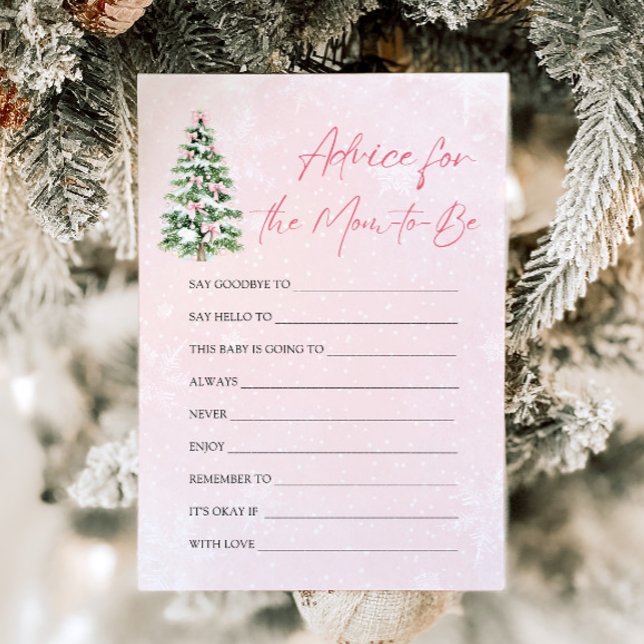 Advice for
the Mom-to-Be
SAY GOODBYE TO
SAY HELLO TO
THIS BABY IS GOING TO
ALWAYS
NEVER
ENJOY
REMEMBER TO
IT'S OKAY IF
WITH LOVE